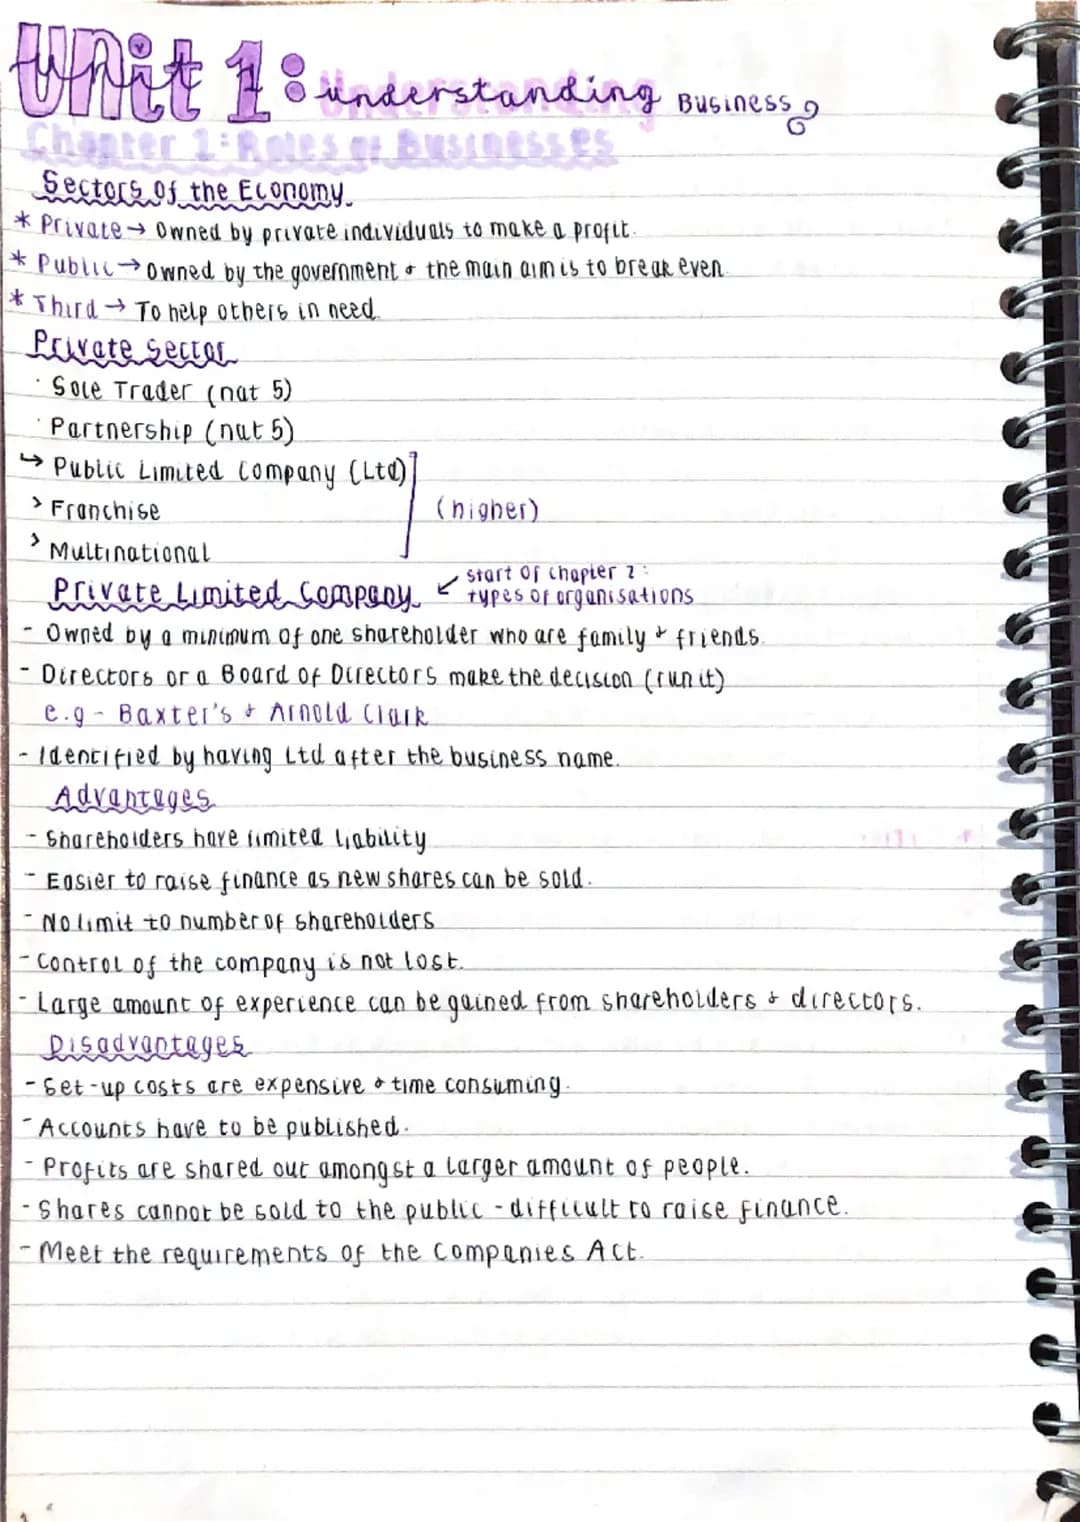 Unit 1: Understanding Business
Chapter 1: Roles of Businesses
Sectors of the Economy
* Private → Owned by private individuals to make a profit.
* Public → Owned by the government & the main aim is to break even.
* Third → To help others in need.
Private Sector
· Sole Trader (nat 5)
· Partnership (nat 5)
↳ Public Limited Company (Ltd)
> Franchise (higher)
> Multinational
Private Limited Company ↙ start of chapter 2:
types of organisations
- Owned by a minimum of one shareholder who are family & friends.
- Directors or a Board of Directors make the decision (run it)
e.g - Baxter's & Arnold Clark
- Identified by having Ltd after the business name.
Advantages
- Shareholders have limited liability
- Easier to raise finance as new shares can be sold.
- No limit to number of shareholders
- Control of the company is not lost.
- Large amount of experience can be gained from shareholders & directors.
Disadvantages
- Set-up costs are expensive & time consuming.
- Accounts have to be published.
- Profits are shared out amongst a larger amount of people.
- Shares cannot be sold to the public - difficult to raise finance.
- Meet the requirements of the Companies Act.